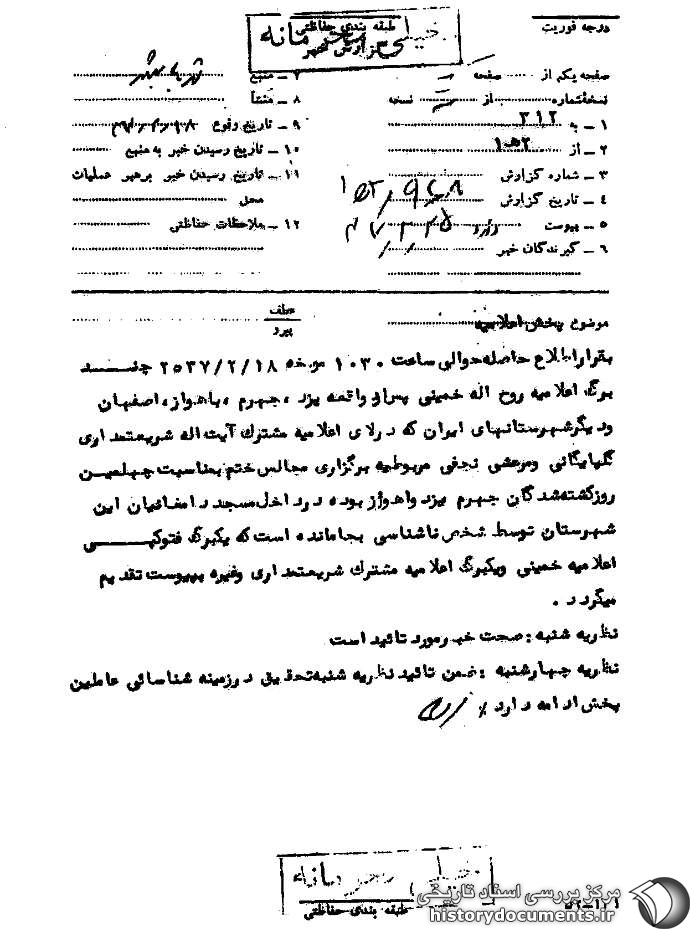 درجه فوریت
طبقه بندی حفاظتی
خیلی محرمانه
گزارش خبر
صفحه یکم از صفحه
نسخه شماره از نسخه
۱ ـ به ۳۱۲
۲ ـ از ۱۰ه۲
۳ ـ شماره گزارش
۴ ـ تاریخ گزارش
۵ ـ پیوست دارد
۶ ـ گیرندگان خبر
۷ ـ منبع
۸ ـ منشأ
۹ ـ تاریخ وقوع
۱۰ ـ تاریخ رسیدن خبر به منبع
۱۱ ـ تاریخ رسیدن خبر برهبر عملیات
محل
۱۲ ـ ملاحظات حفاظتی
موضوع پخش اعلامیه
عطف
پیرو
بقرار اطلاع حاصله حوالی ساعت ۱۰۳۰ مورخه ۲۵۳۷/۲/۱۸ چند
برگ اعلامیه روح اله خمینی پیرو واقعه یزد ، جهرم ، باهواز، اصفهان
و دیگر شهرستانهای ایران که در لای اعلامیه مشترک آیت اله شریعتمداری
گلپایگانی ومرعشی نجفی مربوطبه برگزاری مجالس ختم بمناسبت چهلمین
روز گشته شدگان جهرم یزد واهواز بوده در داخل مسجد دامغانیان این
شهرستان توسط شخص ناشناسی بجا مانده است که یکبرگ فتوکپی
اعلامیه خمینی ویکبرگ اعلامیه مشترک شریعتمداری وغیره بپیوست تقدیم
میگردد .
نظریه شنبه : صحت خبر مورد تائید است
نظریه چهارشنبه : ضمن تائید نظریه شنبه تحقیق در زمینه شناسائی عاملین
پخش ادامه دارد
خیلی محرمانه
طبقه بندی حفاظتی
مرکز بررسی اسناد تاریخی
historydocuments.ir